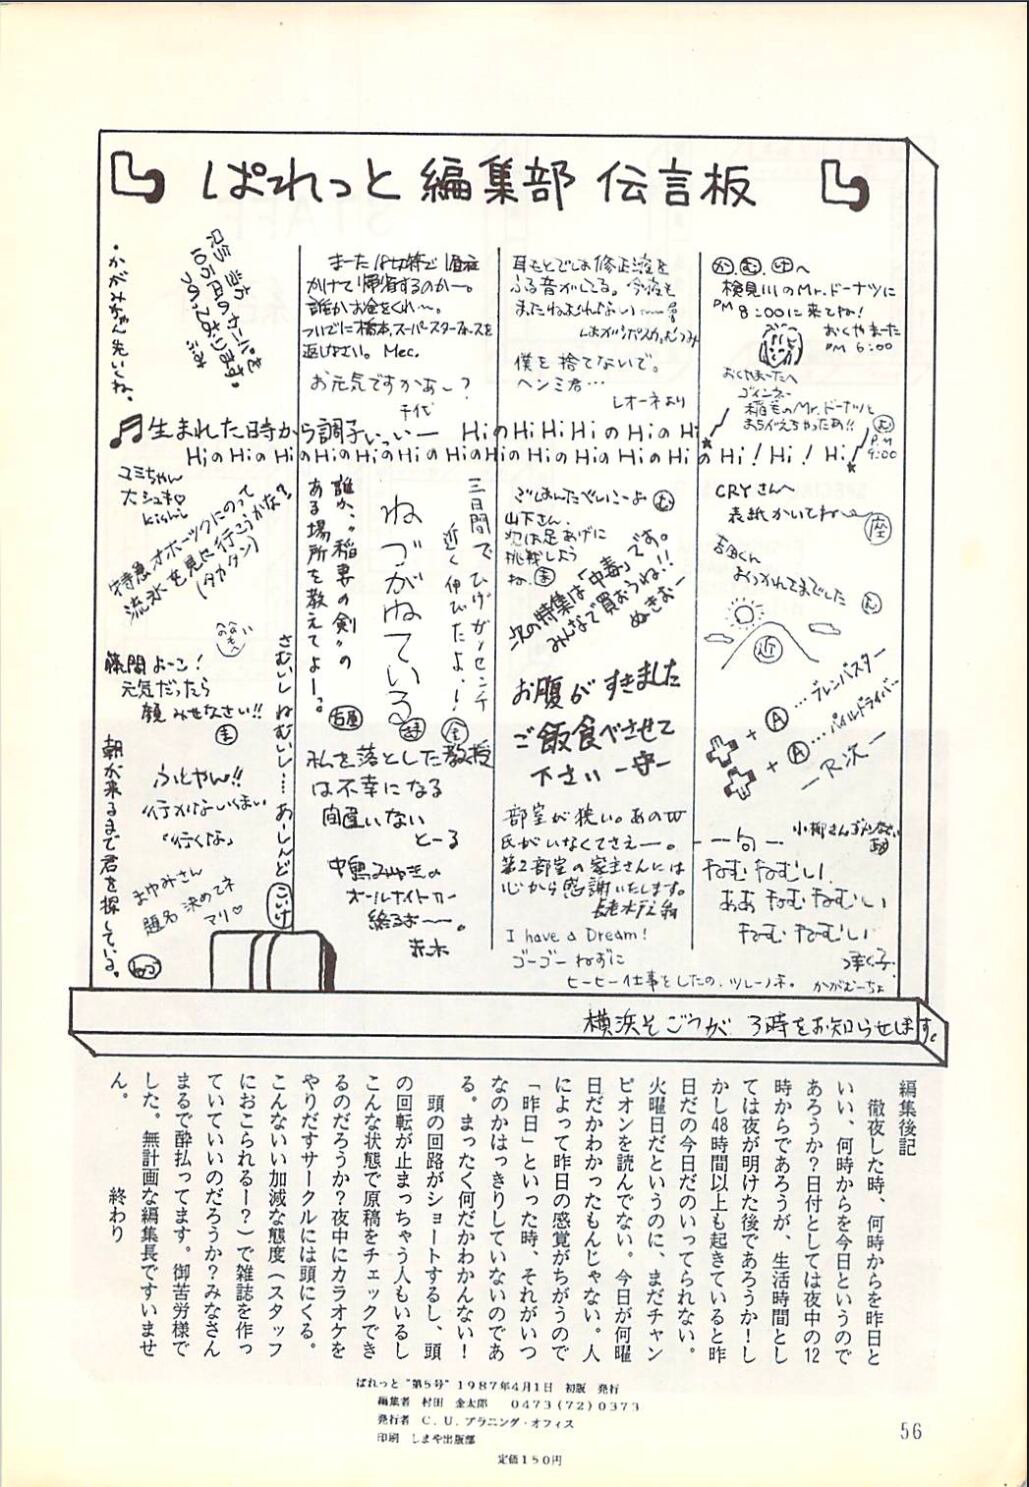 ぱれっと編集部 伝言板
・かがみちゃん先いくね。
只今 当方
10万円のカーペを
つかっております。
ふみ
かけて帰省するのか〜。
誰かお金をくれ〜。
ついでに橋本、スーパースターフォースを
返しなさい。 Mec.
お元気ですかあー?
千代
耳もとでしゅ修正液を
ふる音がしてる。今夜も
僕を捨てないで。
ヘンミ君…
レオーネより
か.む.け へ
検見川のMr.ドーナツに
PM 8:00に来てね!
おくやまーた
PM 6:00
おくやまーたへ
稲毛のMr.ドーナツと
まちがえちゃったあ!!
む
P.M
9:00
♬生まれた時から調子いっいー HiのHiHiHiのHiのHi
HiのHiのHiのHiのHiのHiのHiのHiのHiのHiのHiのHi!Hi!Hi
マミちゃん
大シュキ♡
Kishi
特急オホーツクにのって
流氷を見に行こうかな?
(タカクン)
篠間よーン!
元気だったら
顔みせなさい!!
ま
朝が来るまで君を探している。
ふとやん!!
行かないくまい
「行くな」
まゆみさん
題名決めてネ
マリ♡
さむいしねむいし…あーしんど
こいけ
誰か、“稲妻の剣”の
ある場所を教えてよー。
ねづがねている
三日間でひげが1センチ
近く伸びたよ!
金
私を落とした教授
は不幸になる
間違いない
とーる
中島みゆきの
オールナイトが
終るおーー。
赤木
ごはんたべいこーよ む
山下さん、
次は足あげに
挑戦しよう
ね。ま
次の特集は「中毒」です。
みんなで買おうね!!
ぬきおー
お腹がすきました
ご飯食べさせて
下さい ー守ー
部室が狭い。あのW
氏がいなくてさえー。
第2部室の家主さんには
心から感謝いたします。
I have a Dream!
ゴーゴーねずに
ヒーヒー仕事をしたの、ツレーノネ。 かがむーちょ
CRYさんへ
表紙かいてねー
座
吉田くん
おつかれさまでした む
近
+ A …ブレンバスター
+ A …パイルドライバー
ーR次ー
ー句ー
ねむねむしい
ああ ねむねむしい
ねむねむしい
横浜そごうが 3時をお知らせします。
編集後記
徹夜した時、何時からを昨日と
いい、何時からを今日というので
あろうか?日付としては夜中の12
時からであろうが、生活時間とし
ては夜が明けた後であろうか!し
かし48時間以上も起きていると昨
日だの今日だのいってられない。
火曜日だというのに、まだチャン
ピオンを読んでない。今日が何曜
日だかわかったもんじゃない。人
によって昨日の感覚がちがうので
「昨日」といった時、それがいつ
なのかはっきりしていないのであ
る。まったく何だかわかんない!
頭の回路がショートするし、頭
の回転が止まっちゃう人もいるし
こんな状態で原稿をチェックでき
るのだろうか?夜中にカラオケを
やりだすサークルには頭にくる。
こんないい加減な態度(スタッフ
におこられるー?)で雑誌を作っ
ていていいのだろうか?みなさん
まるで酔払ってます。御苦労様で
した。無計画な編集長ですいませ
ん。
終わり
ぱれっと“第5号”1987年4月1日 初版 発行
編集者 村田 金太郎 0473(72)0373
発行者 C.U.プラニング・オフィス
印刷 しまや出版部
定価150円
56